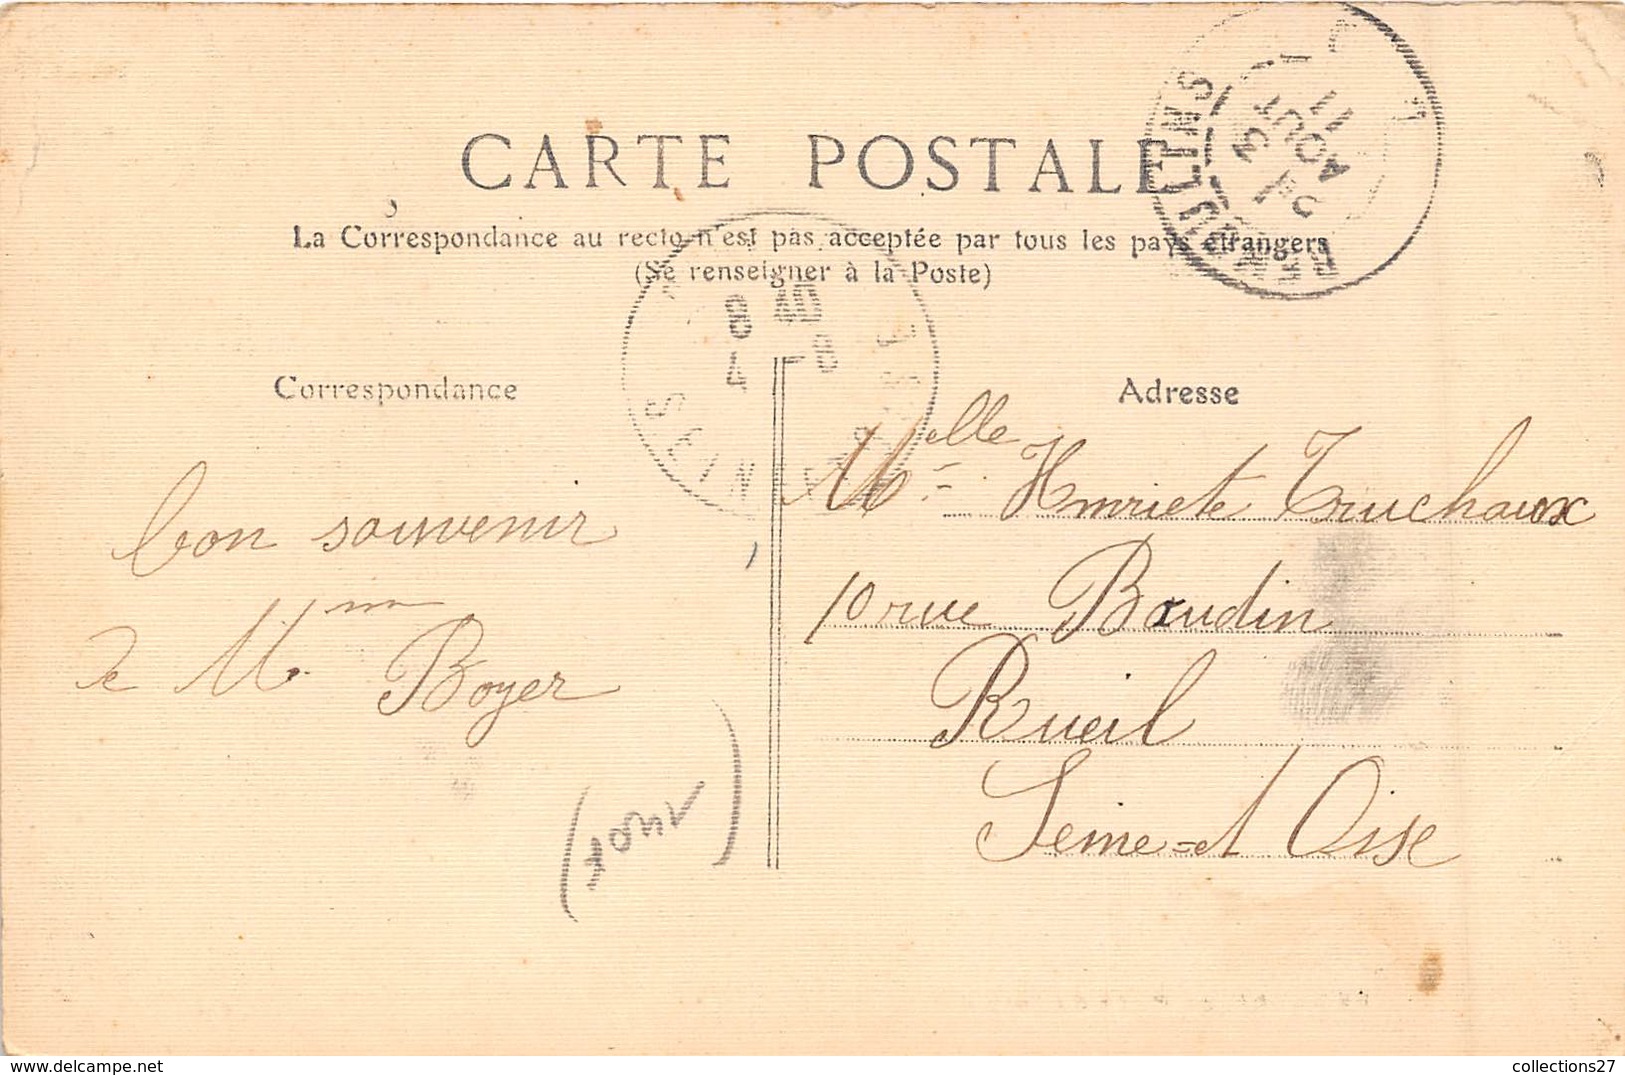 CARTE POSTALE
La Correspondance au recto n'est pas acceptée par tous les pays étrangers
(Se renseigner à la Poste)
Correspondance
bon souvenir
de Mme Boyer
Adresse
Melle Henriete Truchaux
10 rue Baudin
Rueil
Seine-et Oise
AOUT
11
collections27